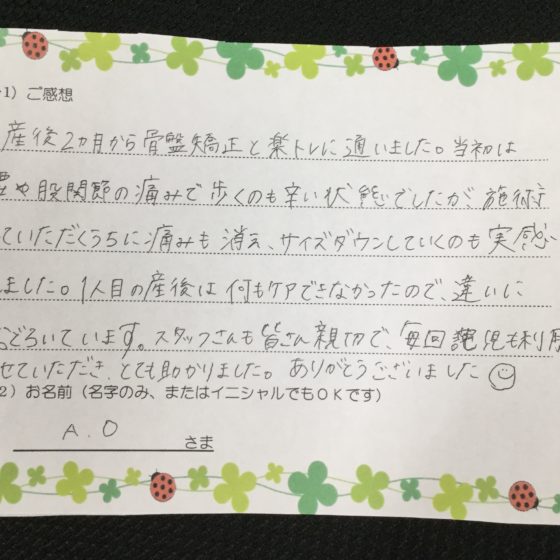 1) ご感想
産後2カ月から骨盤矯正と楽トレに通いました。当初は
や股関節の痛みで歩くのも辛い状態でしたが、施術
ていただくうちに痛みも消え、サイズダウンしていくのも実感
ました。1人目の産後は何もケアできなかったので、違いに
おどろいています。スタッフさんも皆さん親切で、毎回託児も利用
せていただき、とても助かりました。ありがとうございました
2) お名前（名字のみ、またはイニシャルでもOKです）
A.O さま